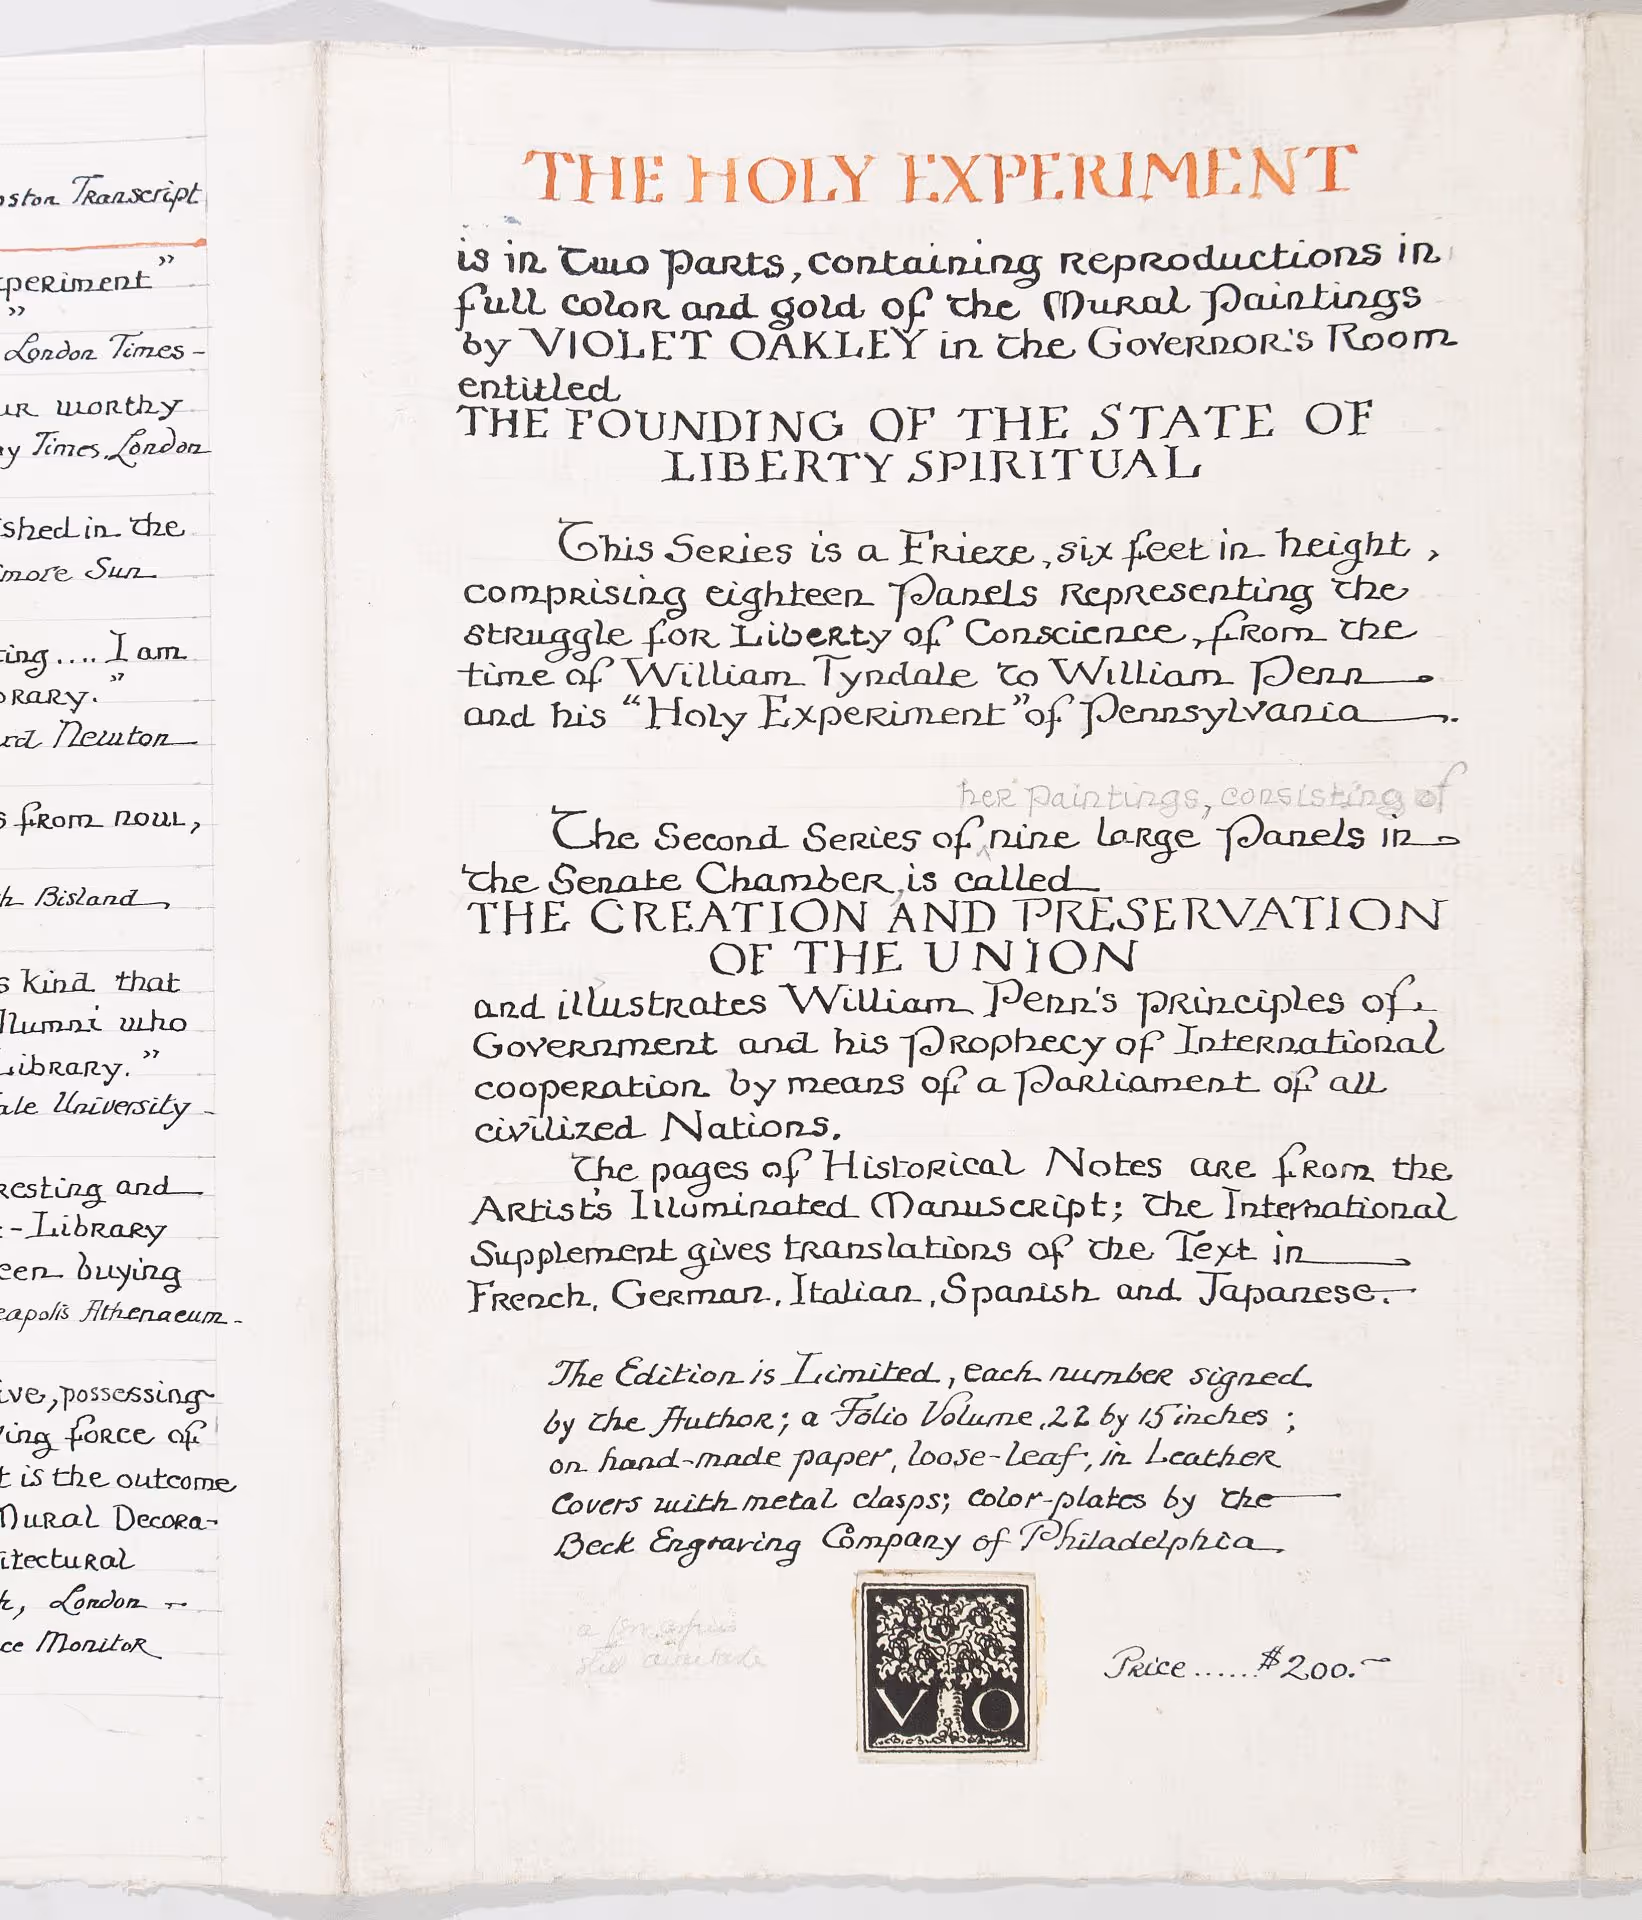 oston Transcript
periment"
"
London Times-
ur worthy
y Times, London
shed in the
more Sun
ing.... I am
brary."
rd Newton
s from now,
h Bisland,
s kind that
lumni who
Library."
ale University -
resting and
-Library
een buying
eapolis Athenaeum-
ive, possessing
ing force of
t is the outcome
Mural Decora-
itectural
k, London -
ce Monitor
THE HOLY EXPERIMENT
is in two parts, containing reproductions in
full color and gold of the Mural Paintings
by VIOLET OAKLEY in the Governor's Room
entitled
THE FOUNDING OF THE STATE OF
LIBERTY SPIRITUAL
This Series is a Frieze, six feet in height,
comprising eighteen Panels representing the
struggle for Liberty of Conscience, from the
time of William Tyndale to William Penn
and his "Holy Experiment" of Pennsylvania.
her paintings, consisting of
The Second Series of nine large Panels in
the Senate Chamber, is called
THE CREATION AND PRESERVATION
OF THE UNION
and illustrates William Penn's principles of
Government and his Prophecy of International
cooperation by means of a Parliament of all
civilized Nations.
The pages of Historical Notes are from the
Artist's Illuminated Manuscript; the International
Supplement gives translations of the Text in
French, German, Italian, Spanish and Japanese.
The Edition is Limited, each number signed
by the Author; a Folio Volume, 22 by 15 inches;
on hand-made paper, loose-leaf, in Leather
Covers with metal clasps; color-plates by the
Beck Engraving Company of Philadelphia
VO
Price......$200.-